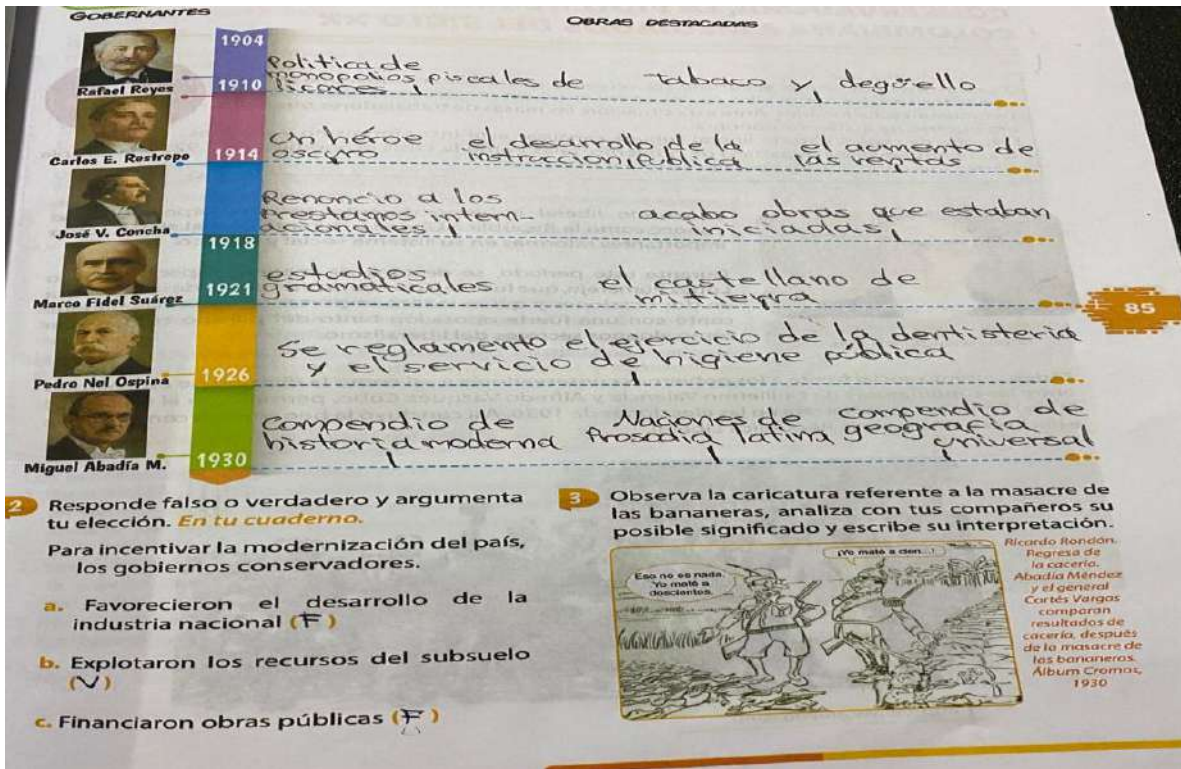 GOBERNANTES
OBRAS DESTACADAS
1904
Rafael Reyes
1910
Politica de
monopolios piscales de tabaco y degüello
licores
Carlos E. Restrepo
1914
un héroe el desarrollo de la el aumento de
oscuro instruccion publica las rentas
José V. Concha
1918
Renoncio a los
prestamos intern- acabo obras que estaban
acionales iniciadas
Marco Fidel Suárez
1921
estudios el castellano de
gramaticales mi tierra
85
Pedro Nel Ospina
1926
se reglamento el ejercicio de la dentisteria
y el servicio de higiene pública
Miguel Abadía M.
1930
compendio de Naciones de compendio de
historia moderna Prosodia latina geografía
universal
2 Responde falso o verdadero y argumenta
tu elección. En tu cuaderno.
Para incentivar la modernización del país,
los gobiernos conservadores.
a. Favorecieron el desarrollo de la
industria nacional (F)
b. Explotaron los recursos del subsuelo
(V)
c. Financiaron obras públicas (F)
3 Observa la caricatura referente a la masacre de
las bananeras, analiza con tus compañeros su
posible significado y escribe su interpretación.
Eso no es nada.
Yo maté a
doscientos.
¡Yo maté a cien...!
Ricardo Rondón.
Regresa de
la cacería.
Abadía Méndez
y el general
Cortés Vargas
comparan
resultados de
cacería, después
de la masacre de
las bananeras.
Álbum Cromos,
1930